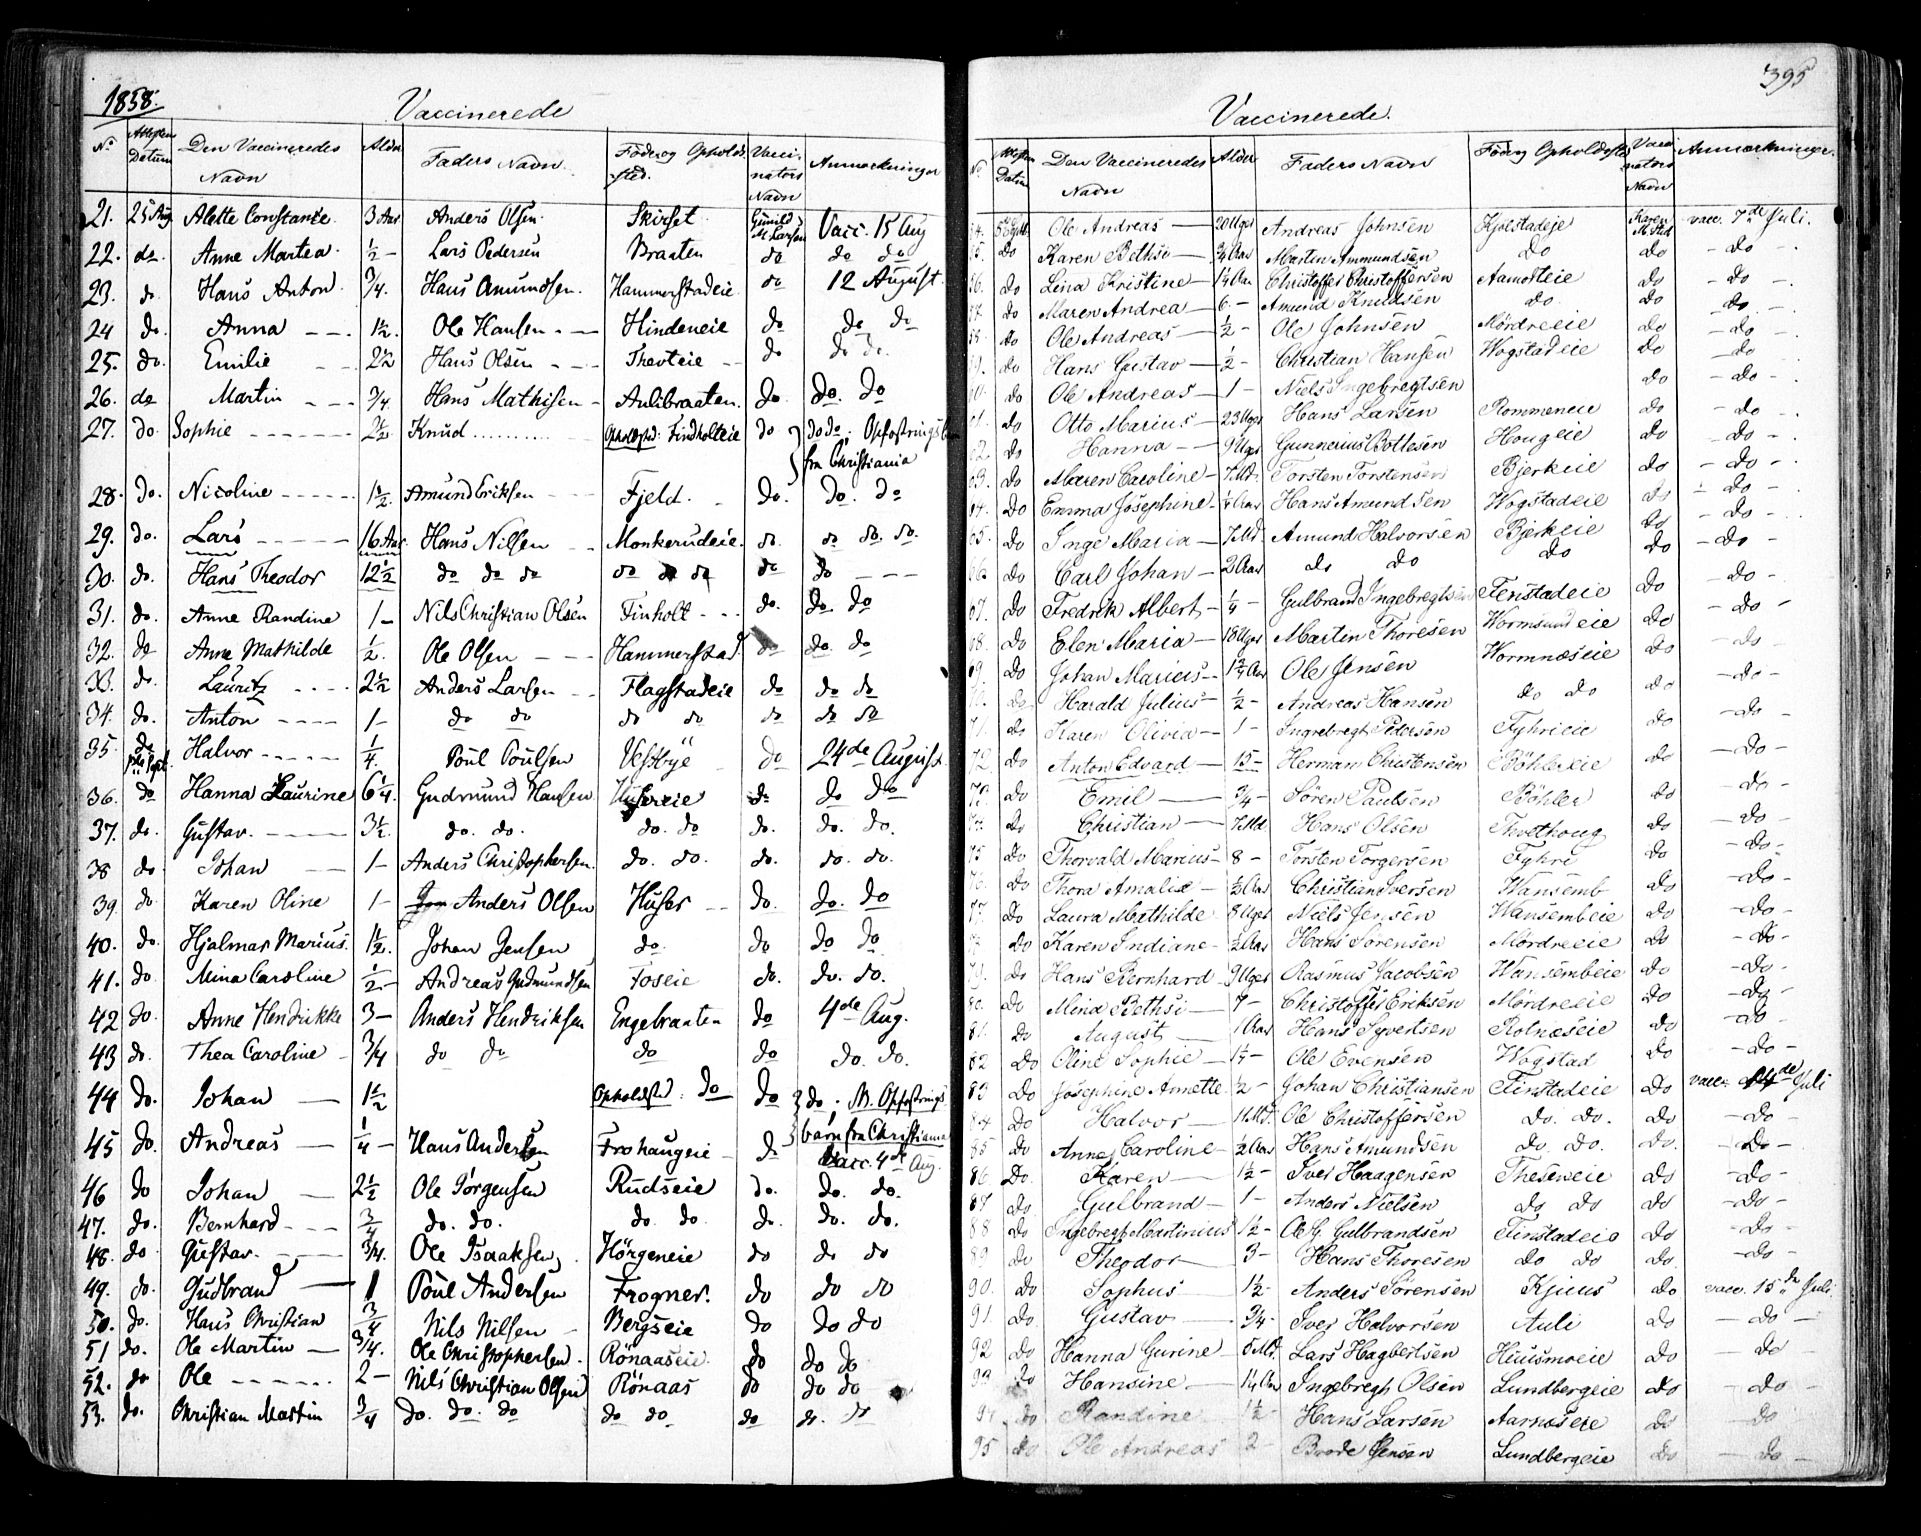 1858.
Vaccinerede
No | Attesten Datum | Den Vaccineredes Navn | Alder | Faders Navn | Føde og Opholdsted. | Vaccinators Navn | Anmærkninger
21. 25 Aug Alette Constance 3 Aar Anders Olsen Skirset Gunild M Larsen Vacc. 15 Aug
22. do Anne Martea ½ – Lars Pedersen Braaten do do do
23. do Hans Anton ¾. Hans Amundsen Hammerstadeie do 12 August.
24 do. Anna 1½. Ole Hansen Hindeneie do do do
25. do. Emilie 2½ Hans Olsen Theoteie do do do.
26. do Martin ¾. Hans Mathisen Aulibraaten. do. do. do
27. do Sophie 2½ Knud Opholdssted. Findholteie do do do. Opfostringsbarn
fra Christiania
28. do. Nicoline 1½. Amund Eriksen Fjeld. do. do. do
29. do. Lars 16 Aar Hans Nilsen Monkerudeie. do. do do. do.
30. do. Hans Theodor 12½ do do do do do do do do
31. do. Anne Randine 1– Nils Christian Olsen Finholt do. do do
32. do Anne Mathilde ½. Ole Olsen Hammerstad do do. do
33. do. Lauritz 2½ Anders Larsen Flagstadeie do do do
34. do. Anton 1– do do do do do do do
35. do Halvor ¼. Poul Poulsen Vestbye do 24de August
36. do Hanna Laurine 6¼. Gudmund Hansen Husereie do do do
37. do. Gustav. 3½. do. do. do. do do. do. do.
38 do. Johan 1– Anders Christophersen. do. do. do. do. do.
39 do Karen Oline 1– Anders Olsen Huser do. do. do
40. do. Hjalmar Marius. 1½. Johan Jensen do. do do do
41. do Mina Caroline ½ – Andreas Gudmundsen Foseie do. do. do.
42 do. Anne Hendrikke 3– Anders Hendriksen Engebraaten do 4de Aug.
43 do. Thea Caroline ¾ do do do do do. do.
44 do. Johan 1½ Opholdsted. do do do; M. Opfostrings
barn fra Christiania
45 do. Andreas ¼ – Hans Andersen Frohaugeie do Vacc. 4de Aug.
46 do Johan 2½ Ole Jørgensen Rudseie do. do. do.
47. do. Bernhard ¾ do. do. do. do. do. do. do.
48. do Gustav. ¾. Ole Isaaksen Hørgeneie do do do
49. do. Gudbrand 1 Poul Andersen Frogner. do do do
50. do. Hans Christian ¾ Nils Nilsen Bergseie do do do
51 do. Ole Martin ¾. Ole Christophersen. Rönaaseie. do do do
52. do Ole 2– Nils Christian Olsen Rönaas do do do
53. do. Christian Martin ¾ do. do. do do do do do. do
395
Vaccinerede.
No | Attesten Datum | Den Vaccineredes Navn | Alder | Faders Navn | Føde og Opholdsted | Vaccinators Navn | Anmærkninger.
54. 5 Sept. Ole Andreas 20 Uger Andreas Johnsen Kjølstadeje Karen vacc. 7de Juli.
55. do Karen Bethse ¾ Aar Marten Ammundsen do do do
56. do Lina Kristine 1¼ Aar Christoffer Christoffersen Aamodteie do do
57. do Maren Andrea 6 – Amund Knudsen do do do
58. do Ole Andreas ½ – Ole Johnsen Mördreeie do do
59. do Hans Gustav ½ – Christian Hansen Wogstadeie do do
60. do Ole Andreas 1 – Niels Ingebregtsen do do
61. do Otto Marius 23 Uger Hans Larsen Rommeneie do do
62. do Hanna 9 Uger Gunnerius Bottesen Hougeie do do
63. do Maren Caroline 7 Md. Torsten Torstensen Bjerkeie do do
64. do Emma Josephine ¼ Aar Hans Amundsen Wogstadeie do do
65. do Inge Maria 7 Md. Amund Halvorsen Bjerkeie do do
66. do Carl Johan 2 Aar do do do do do
67. do Fredrik Albert ¼ – Gulbrand Ingebregtsen Finstadeie do do
68. do Elen Maria 16 Uger Martin Thoresen Wormsundeie do do
69. do Johan Marius 1¼ Aar Ole Jensen Wormnæseie do do
70. do Harald Julius ½ – Andreas Hansen do do do do
71. do Karen Olivia 1 – Ingebregt Pedersen Fyhrieie do do
72 do Anton Edvard 15 – Herman Christensen Böhlereie do do
73. do Emil ¾ – Søren Paulsen Böhler do do
74. do Christian 7 Md. Hans Olsen Thvethoug do do
75 do Thorvald Marius 8 – Torsten Torgersen Fyhri do do
76. do Thora Amalie ½ Aar Christian Iversen Wansemb do do
77. do Laura Mathilde 8 Uger Niels Jensen Wansembeie do do
78. do Karen Indiane 2 Aar Hans Sørensen Mördreeie do do
79. do Hans Bernhard 9 Uger Rasmus Jacobsen Wansembeie do do
80. do Mina Bethsi 7 – Christoffer Eriksen Mördreeie do do
81. do August 1 Aar Hans Syvertsen Rotnæseie do do
82 do Oline Sophie 1¼ – Ole Evensen Wogstad do do
83 do Josephine Annette 2 – Johan Christiansen Finstadeie do vacc. 14de Juli
84 do Halvor 11 Md. Ole Christoffersen do. do. do. do
85 do Anne Caroline ½ Aar Hans Amundsen do do. do. do
86 do. Karen 1½ – Iver Haagensen Theseneie do do
87 do. Gulbrand 1 – Anders Nielsen do do do do
88 do Ingebregt Martinius 1½ – Ole G. Gulbrandsen Finstadeie do do
89 do Theodor 3 – Hans Thoresen do do do do
90. do Sophus 1½ – Anders Sørensen Kjuus do vacc. 15de Juli
91. do Gustav ¾ – Iver Halvorsen Auli do do
92 do Hanna Gurine 5 Md. Lars Hagbertsen Huusmoeie do do
93 do Hansine 1¼ Aar Ingebregt Olsen Lundbergeie do do
94 do Randine 1½ – Hans Larsen Aarnæseie do do
95 do Ole Andreas 2 – Brede Jensen Lundbergeie do do